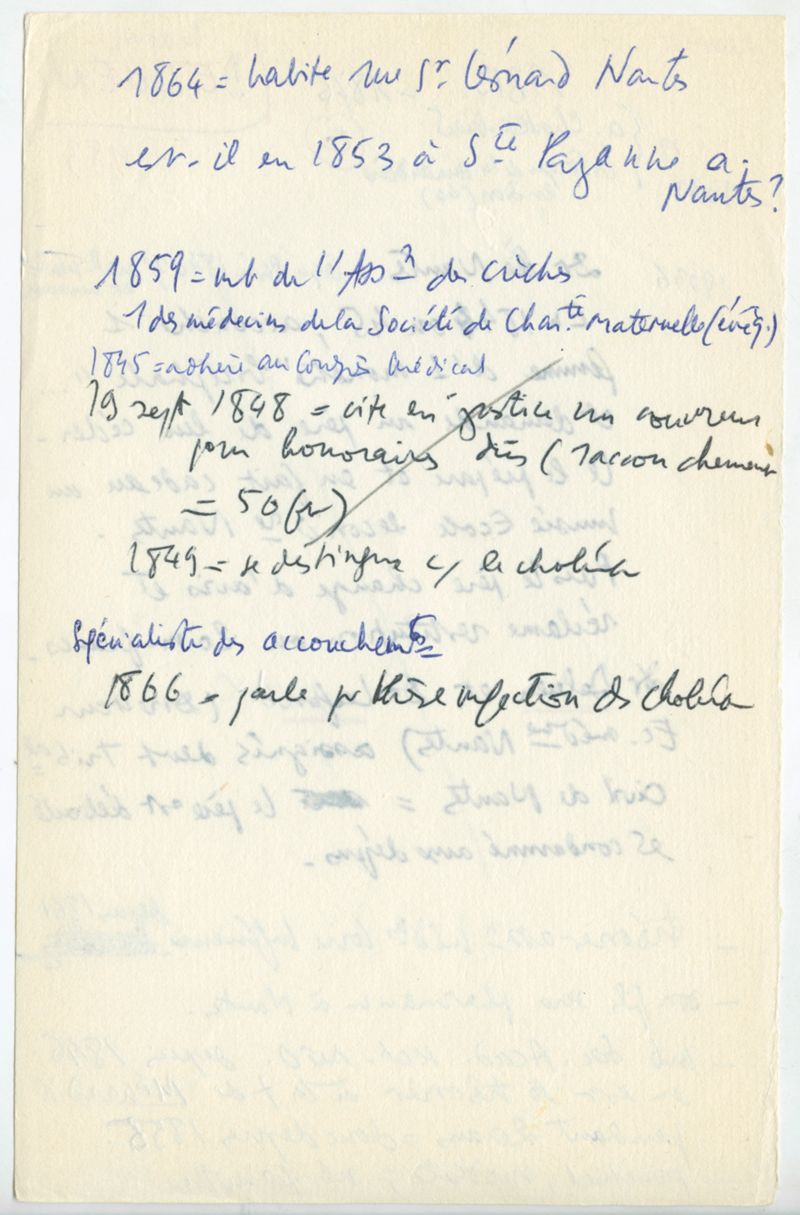 1864 = habite rue St Léonard Nantes
est-il en 1853 à Ste Pazanne a.
Nantes?
1859 = mb de l'Asson des crèches
1 des médecins de la Société de Charité maternelle (évêq.)
1845 = adhère au Congrès médical
19 sept 1848 = cite en justice un couvreur
pour honoraires dûs (1 accouchement
= 50 fr)
1849 = se distingue c/ le choléra
Spécialiste des accouchemts
1866 = parle pr thèse infection ds choléra